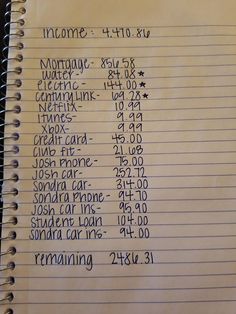 income: 4,470.86
Mortgage- 856.58
water- 84.08★
electric- 144.00★
Century Link- 69.28★
Netflix- 10.99
itunes- 9.99
Xbox- 9.99
Credit card- 45.00
Club fit- 21.68
Josh Phone- 75.00
Josh car- 252.72
Sondra car- 314.00
Sondra Phone- 94.70
Josh car ins- 95.90
Student Loan 104.00
Sondra car ins- 94.00
remaining 2486.31